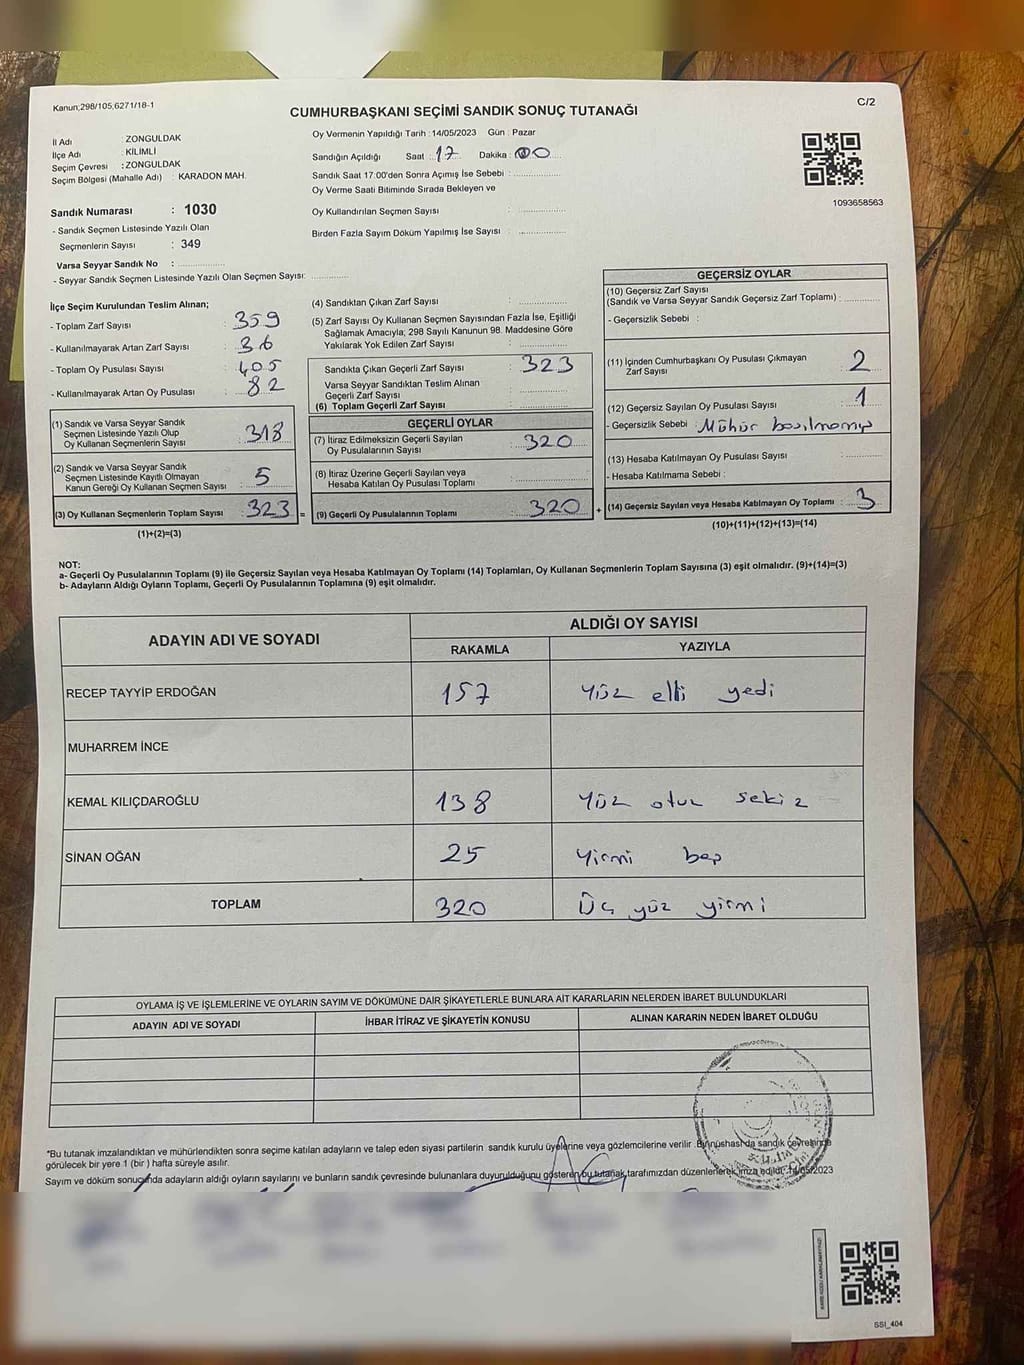 Kanun;298/105,6271/18-1
C/2
CUMHURBAŞKANI SEÇİMİ SANDIK SONUÇ TUTANAĞI
İl Adı : ZONGULDAK
İlçe Adı : KİLİMLİ
Seçim Çevresi : ZONGULDAK
Seçim Bölgesi (Mahalle Adı) : KARADON MAH.
Oy Vermenin Yapıldığı Tarih : 14/05/2023 Gün : Pazar
Sandığın Açıldığı Saat : 17 Dakika : 00
Sandık Saat 17:00'den Sonra Açımış İse Sebebi :
Oy Verme Saati Bitiminde Sırada Bekleyen ve
Oy Kullandırılan Seçmen Sayısı :
Birden Fazla Sayım Döküm Yapılmış İse Sayısı :
1093658563
Sandık Numarası : 1030
- Sandık Seçmen Listesinde Yazılı Olan
Seçmenlerin Sayısı : 349
Varsa Seyyar Sandık No :
- Seyyar Sandık Seçmen Listesinde Yazılı Olan Seçmen Sayısı:
İlçe Seçim Kurulundan Teslim Alınan;
- Toplam Zarf Sayısı : 359
- Kullanılmayarak Artan Zarf Sayısı : 36
- Toplam Oy Pusulası Sayısı : 405
- Kullanılmayarak Artan Oy Pusulası : 82
(1) Sandık ve Varsa Seyyar Sandık
Seçmen Listesinde Yazılı Olup
Oy Kullanan Seçmenlerin Sayısı : 318
(2) Sandık ve Varsa Seyyar Sandık
Seçmen Listesinde Kayıtlı Olmayan
Kanun Gereği Oy Kullanan Seçmen Sayısı : 5
(3) Oy Kullanan Seçmenlerin Toplam Sayısı : 323 =
(1)+(2)=(3)
(4) Sandıktan Çıkan Zarf Sayısı :
(5) Zarf Sayısı Oy Kullanan Seçmen Sayısından Fazla İse, Eşitliği
Sağlamak Amacıyla; 298 Sayılı Kanunun 98. Maddesine Göre
Yakılarak Yok Edilen Zarf Sayısı :
Sandıkta Çıkan Geçerli Zarf Sayısı : 323
Varsa Seyyar Sandıktan Teslim Alınan
Geçerli Zarf Sayısı :
(6) Toplam Geçerli Zarf Sayısı :
GEÇERLİ OYLAR
(7) İtiraz Edilmeksizin Geçerli Sayılan
Oy Pusulalarının Sayısı : 320
(8) İtiraz Üzerine Geçerli Sayılan veya
Hesaba Katılan Oy Pusulası Toplamı :
(9) Geçerli Oy Pusulalarının Toplamı : 320 +
GEÇERSİZ OYLAR
(10) Geçersiz Zarf Sayısı
(Sandık ve Varsa Seyyar Sandık Geçersiz Zarf Toplamı) :
- Geçersizlik Sebebi :
(11) İçinden Cumhurbaşkanı Oy Pusulası Çıkmayan
Zarf Sayısı : 2
(12) Geçersiz Sayılan Oy Pusulası Sayısı : 1
- Geçersizlik Sebebi : Mühür basılmamış
(13) Hesaba Katılmayan Oy Pusulası Sayısı :
- Hesaba Katılmama Sebebi :
(14) Geçersiz Sayılan veya Hesaba Katılmayan Oy Toplamı : 3
(10)+(11)+(12)+(13)=(14)
NOT:
a- Geçerli Oy Pusulalarının Toplamı (9) ile Geçersiz Sayılan veya Hesaba Katılmayan Oy Toplamı (14) Toplamları, Oy Kullanan Seçmenlerin Toplam Sayısına (3) eşit olmalıdır. (9)+(14)=(3)
b- Adayların Aldığı Oyların Toplamı, Geçerli Oy Pusulalarının Toplamına (9) eşit olmalıdır.
ADAYIN ADI VE SOYADI
ALDIĞI OY SAYISI
RAKAMLA YAZIYLA
RECEP TAYYİP ERDOĞAN 157 yüz elli yedi
MUHARREM İNCE
KEMAL KILIÇDAROĞLU 138 yüz otuz sekiz
SİNAN OĞAN 25 yirmi beş
TOPLAM 320 Üç yüz yirmi
OYLAMA İŞ VE İŞLEMLERİNE VE OYLARIN SAYIM VE DÖKÜMÜNE DAİR ŞİKAYETLERLE BUNLARA AİT KARARLARIN NELERDEN İBARET BULUNDUKLARI
ADAYIN ADI VE SOYADI İHBAR İTİRAZ VE ŞİKAYETİN KONUSU ALINAN KARARIN NEDEN İBARET OLDUĞU
*Bu tutanak imzalandıktan ve mühürlendikten sonra seçime katılan adayların ve talep eden siyasi partilerin sandık kurulu üyelerine veya gözlemcilerine verilir. Bir nüshası da sandık çevresinde
görülecek bir yere 1 (bir ) hafta süreyle asılır.
Sayım ve döküm sonucunda adayların aldığı oyların sayılarını ve bunların sandık çevresinde bulunanlara duyurulduğunu gösteren bu tutanak tarafımızdan düzenlenerek imza edildi. 14/05/2023
SSİ_404